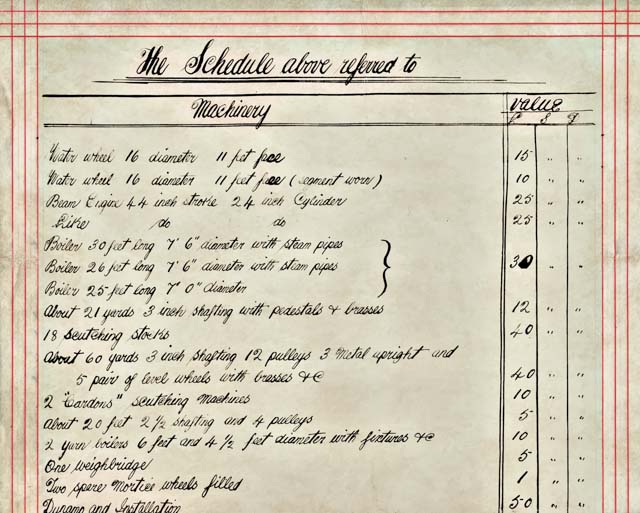 The Schedule above referred to
Machinery value
£ S D
Water wheel 16 diameter 11 feet face 15 " "
Water wheel 16 diameter 11 feet face (segment worn) 10 " "
Beam Engine 44 inch stroke 24 inch Cylinder 25 " "
Like do do 25 " "
Boiler 30 feet long 7' 6" diameter with steam pipes
Boiler 26 feet long 7' 6" diameter with steam pipes } 30 " "
Boiler 25 feet long 7' 0" diameter
About 21 yards 3 inch shafting with pedestals & brasses 12 " "
18 scutching stocks 40 " "
About 60 yards 3 inch shafting 12 pulleys 3 Metal upright and
5 pair of level wheels with brasses &c 40 " "
2 "Cardons" scutching Machines 10 " "
About 20 feet 2 1/2 shafting and 4 pulleys 5 " "
2 yarn boilers 6 feet and 4 1/2 feet diameter with fixtures &c 10 " "
One weighbridge 5 " "
Two spare Mortice wheels filled 1 " "
Dynamo and Installation 50 " "